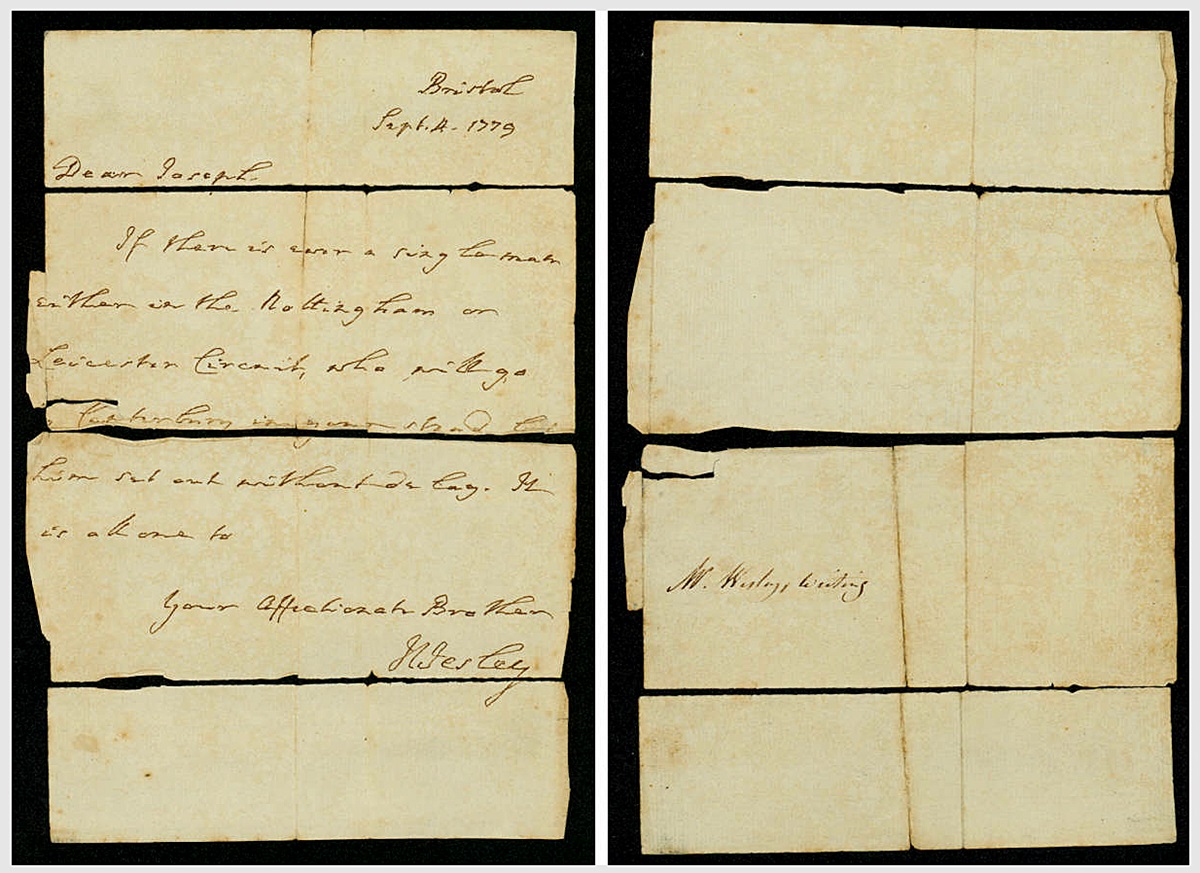 Bristol
Sept. 4. 1779
Dear Joseph
If there is ever a single man
either in the Nottingham or
Leicester Circuit, who will go
Canterbury in your stead let
him set out without delay. It
is all one to
Your Affectionate Brother
JWesley
Mr. Wesleys writing